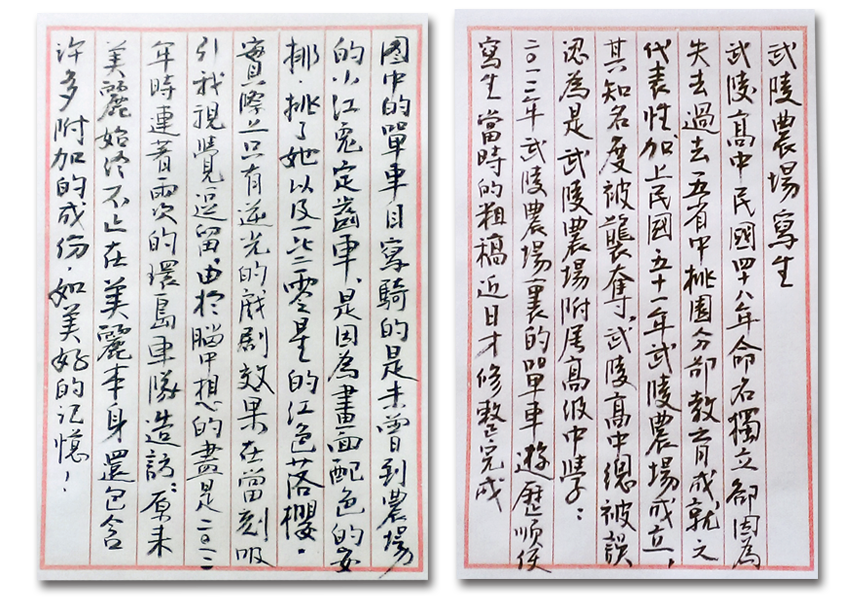 武陵農場寫生
武陵高中民國四十八年命名獨立卻因為
失去過去五省中桃園分部教育成就之
代表性,加上民國五十一年武陵農場成立,
其知名度被襲奪,武陵高中總被誤
認為是武陵農場附屬高級中學:
二〇一三年武陵農場裏的單車遊歷順便
寫生當時的粗稿近日才修整完成
圖中的單車目寫騎的是未曾到農場
的小江兔定齒車,是因為畫面配色的安
排.挑了她以及一些零星的紅色落櫻。
實際上只有逆光的戲劇效果在當刻吸
引我視覺逗留,由於腦中想的盡是二〇一二
年時連著兩次的環島車隊造訪:原來
美麗始終不止在美麗本身還包含
許多附加的成份.如美好的记憶!